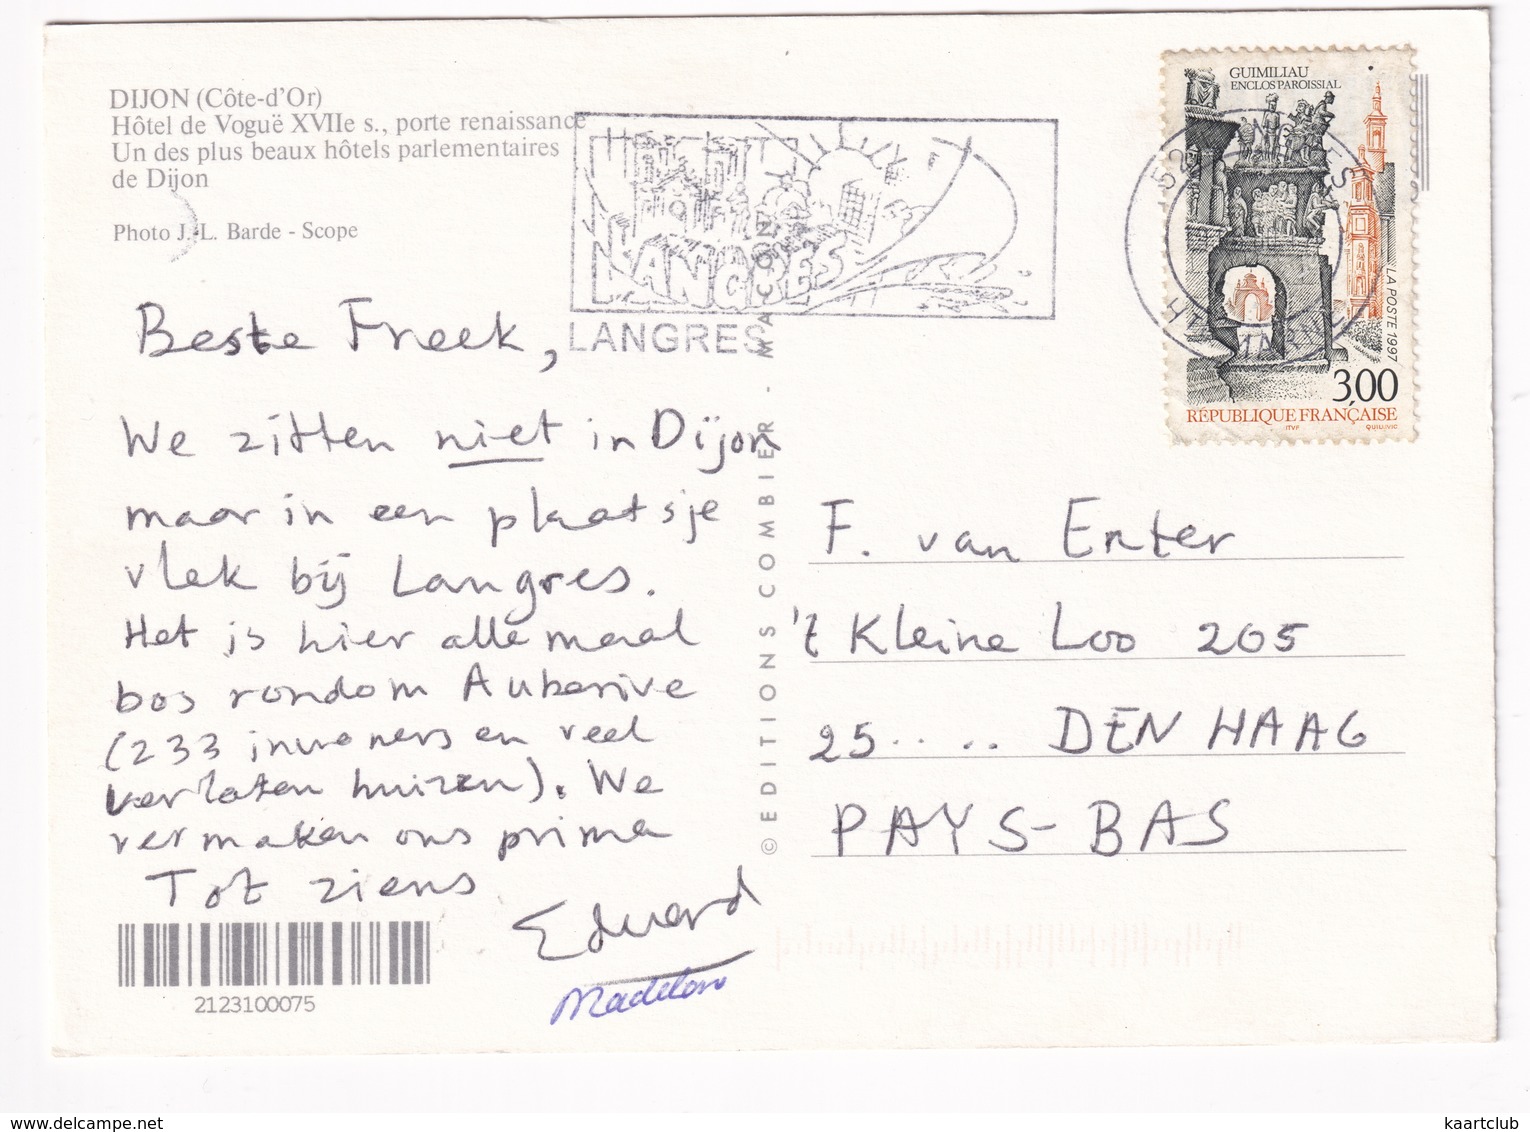 DIJON (Côte-d'Or)
Hôtel de Voguë XVIIe s., porte renaissance
Un des plus beaux hôtels parlementaires
de Dijon
Photo J.-L. Barde - Scope
LANGRES
LANGRES
GUIMILIAU
ENCLOS PAROISSIAL
LA POSTE 1997
3,00
RÉPUBLIQUE FRANÇAISE
ITVF
Beste Freek,
We zitten niet in Dijon
maar in een plaatsje
vlek bij Langres.
Het is hier allemaal
bos rondom Auberive
(233 inwoners en veel
verlaten huizen). We
vermaken ons prima
Tot ziens
Eduard
Madelon
2123100075
© EDITIONS COMBIER - MACON
F. van Enter
't Kleine Loo 205
25..... DEN HAAG
PAYS-BAS
kaartclub